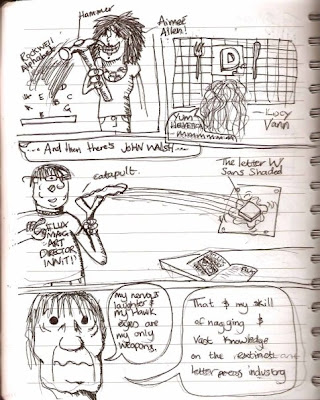 Hammer
Rockwell
Alphabet!
A E C
B D G
Aimee
Allen!
D
YUM
HELVETICA
mmmmmm
Lucy
Vann
....And then there's JOHN WALSH....
catapult.
The letter W,
Sans Shaded
FLUX
MAG
ART
DIRECTOR
INNIT!
Flux
my nervous
laughter &
my Hawk
eyes are
my only
weapons.
That & my skill
of nagging &
Vast knowledge
on the extinct
letter press industry